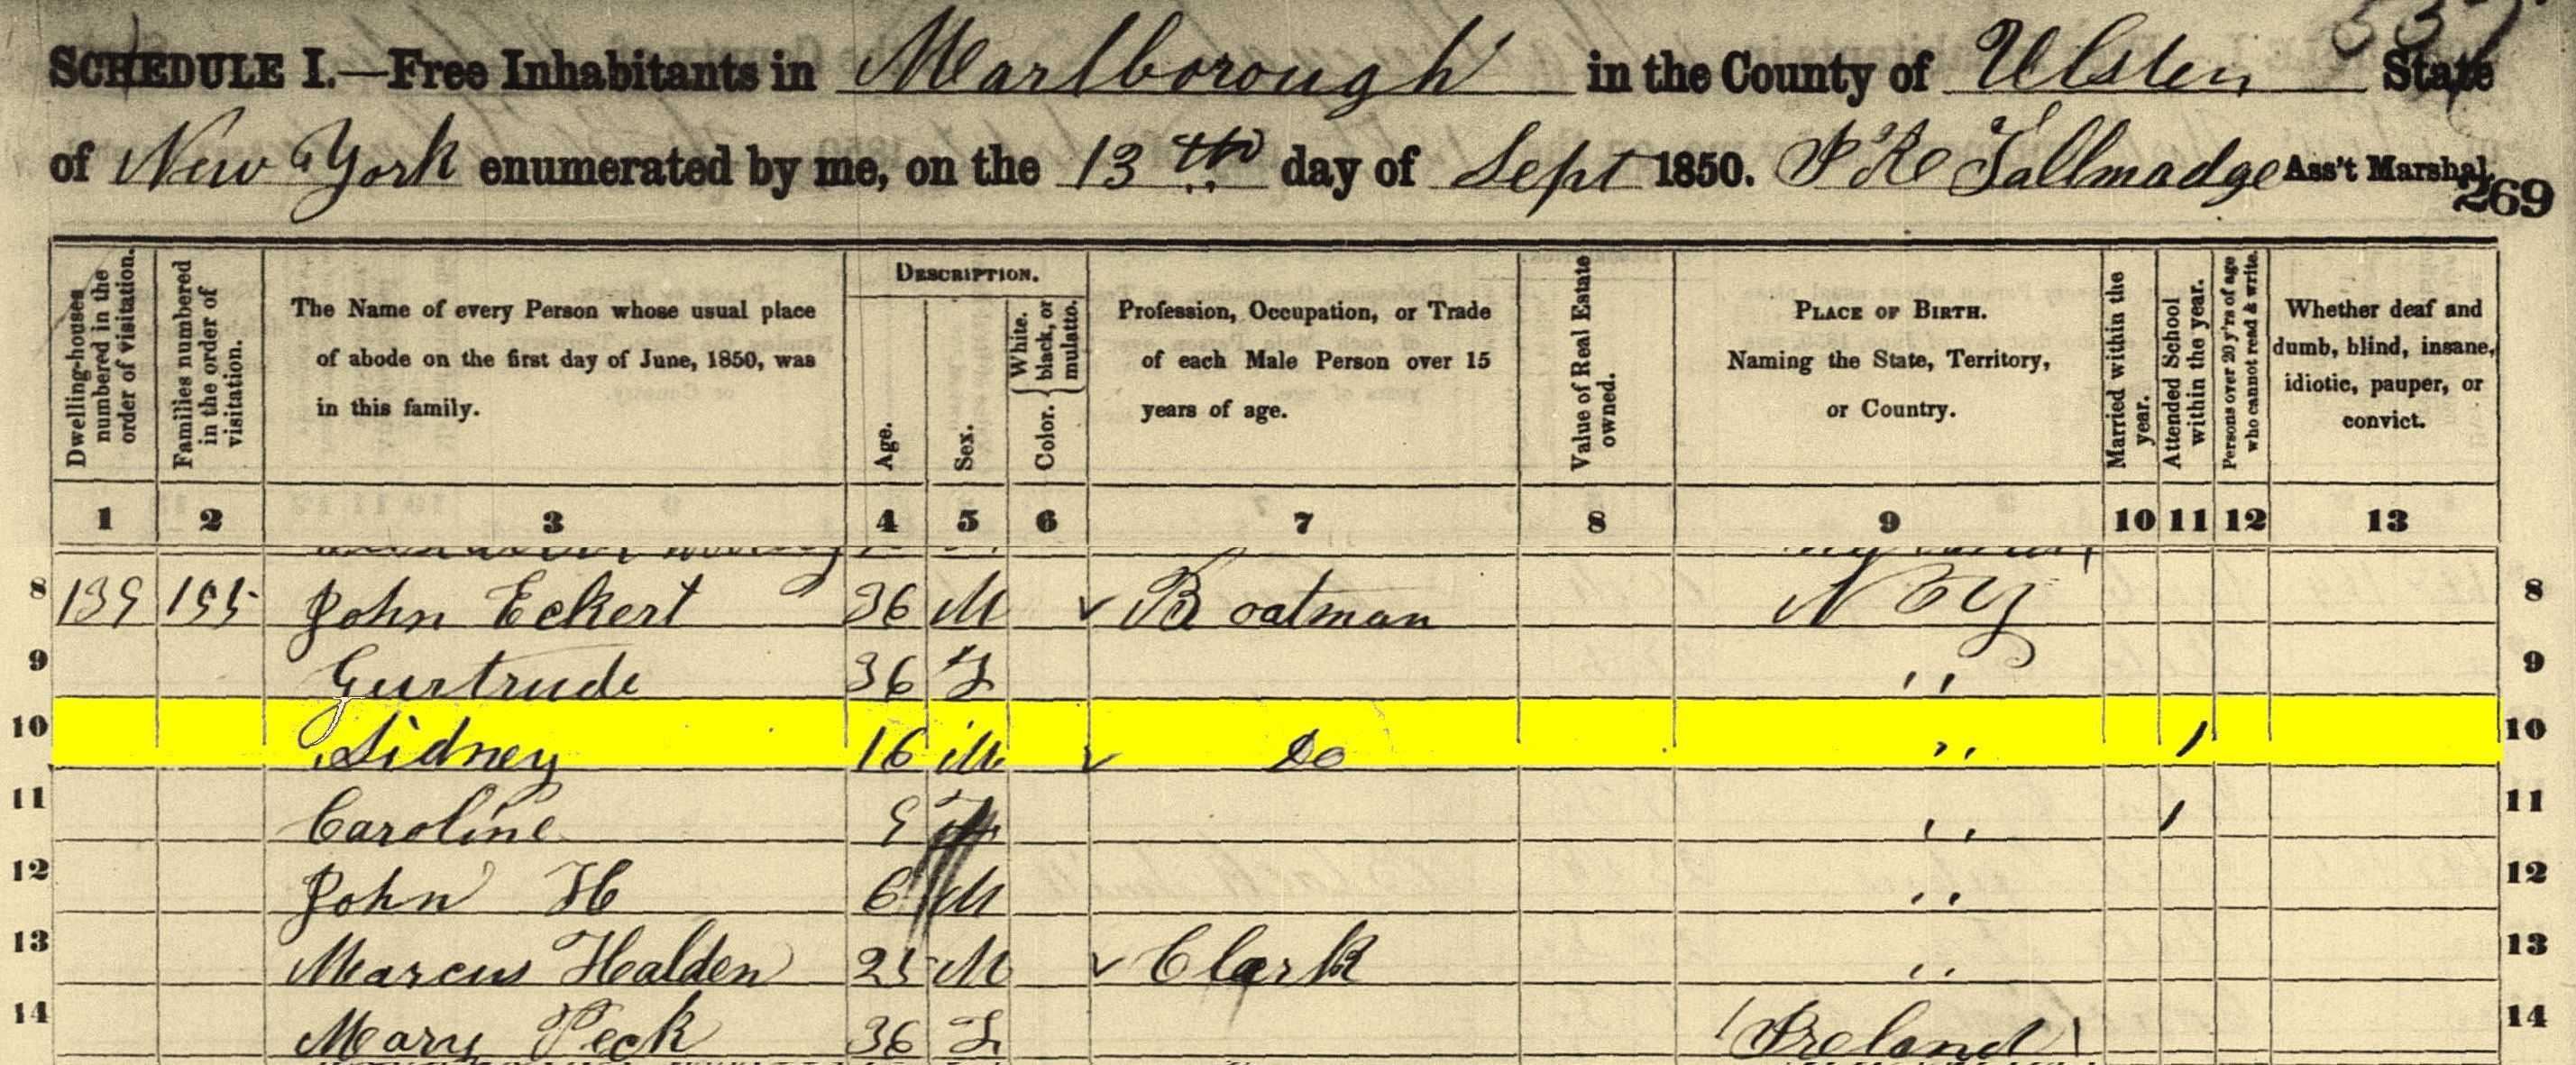 537
SCHEDULE I.—Free Inhabitants in Marlborough in the County of Ulster State
of New York enumerated by me, on the 13th day of Sept 1850. Tallmadge Ass't Marshal.
269
Dwelling-houses numbered in the order of visitation.
Families numbered in the order of visitation.
The Name of every Person whose usual place of abode on the first day of June, 1850, was in this family.
DESCRIPTION.
Age.
Sex.
Color. { White, black, or mulatto.
Profession, Occupation, or Trade of each Male Person over 15 years of age.
Value of Real Estate owned.
PLACE OF BIRTH. Naming the State, Territory, or Country.
Married within the year.
Attended School within the year.
Persons over 20 y'rs of age who cannot read & write.
Whether deaf and dumb, blind, insane, idiotic, pauper, or convict.
1 2 3 4 5 6 7 8 9 10 11 12 13
8 139 155 John Eckert 36 M ✓ Boatman N Y 8
9 Gurtrude 36 F " 9
10 Sidney 16 M ✓ Do " 1 10
11 Caroline 9 F " 1 11
12 John H 6 M " 12
13 Marcus Halden 25 M ✓ Clark " 13
14 Mary Peck 36 F Ireland 14